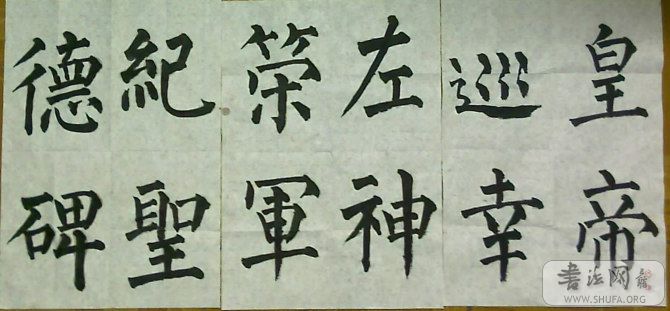 皇帝
巡幸
左神
策軍
紀聖
德碑
書法网
WWW.SHUFA.ORG